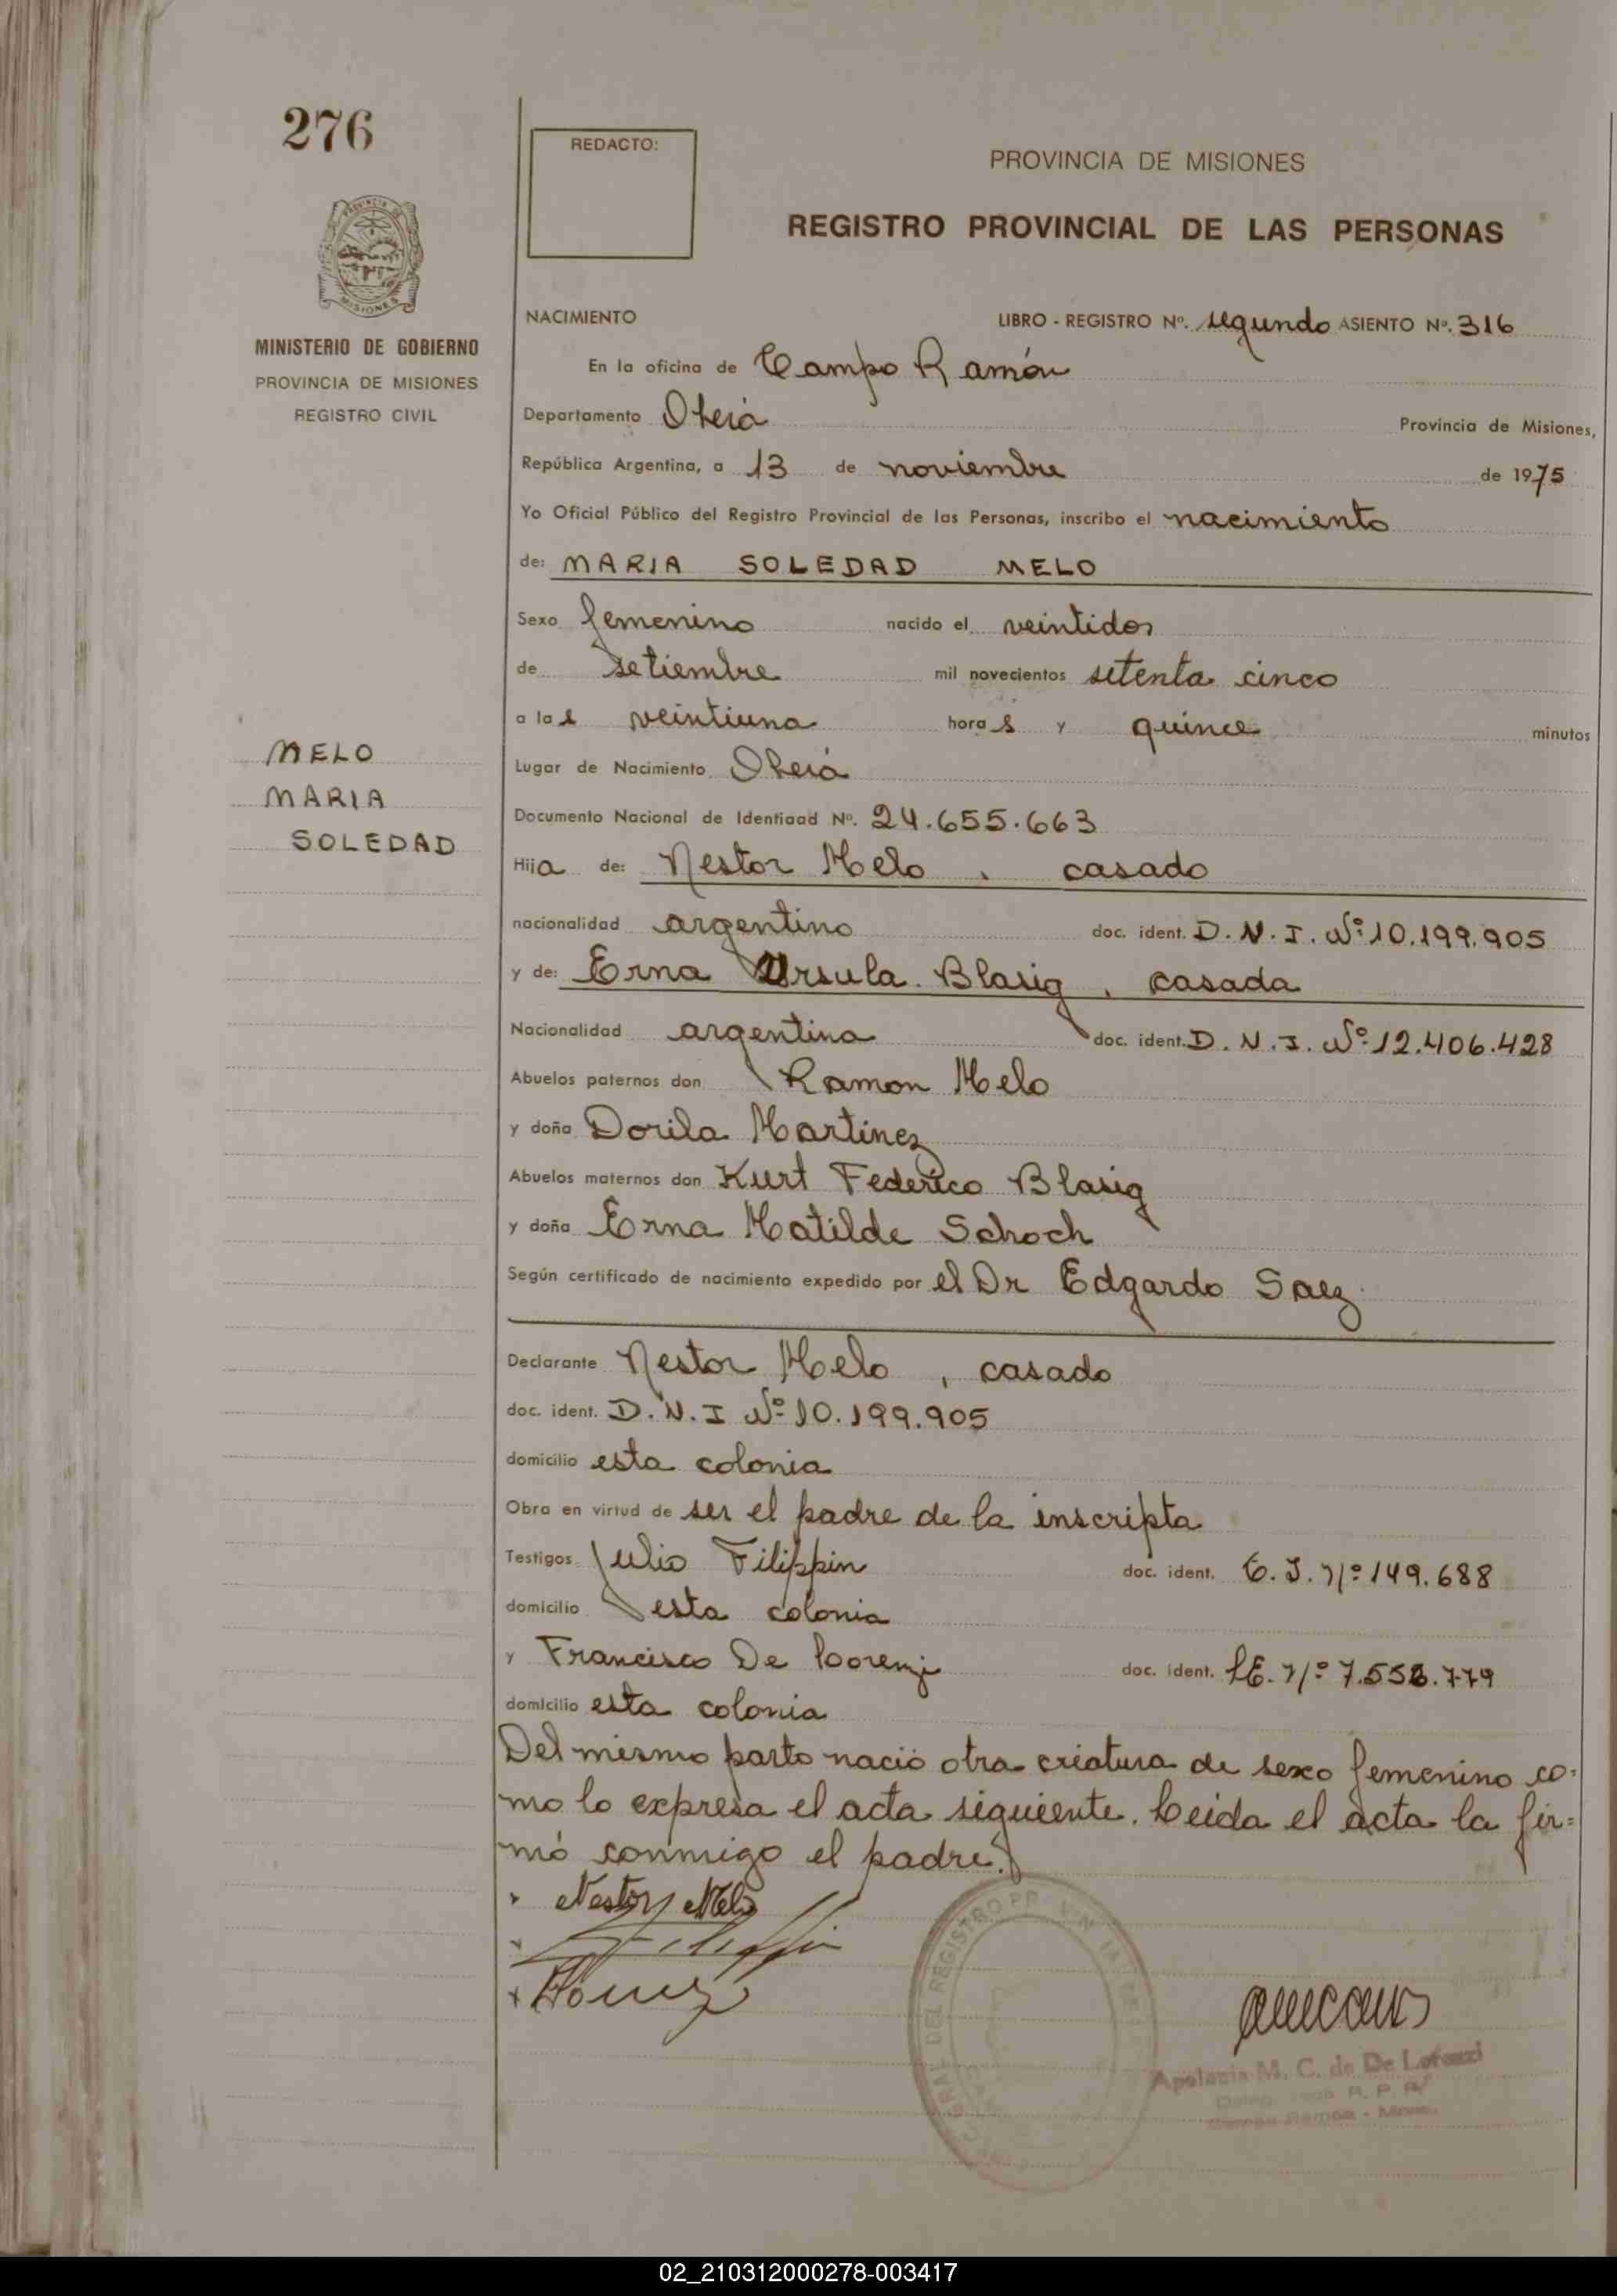 276
REDACTO:
PROVINCIA DE MISIONES
REGISTRO PROVINCIAL DE LAS PERSONAS
PROVINCIA DE
MISIONES
MINISTERIO DE GOBIERNO
PROVINCIA DE MISIONES
REGISTRO CIVIL
NACIMIENTO LIBRO - REGISTRO Nº. segundo ASIENTO Nº. 316
En la oficina de Campo Ramón
Departamento Oberá Provincia de Misiones,
República Argentina, a 13 de noviembre de 1975
Yo Oficial Público del Registro Provincial de las Personas, inscribo el nacimiento
de: MARIA SOLEDAD MELO
Sexo femenino nacido el veintidos
de setiembre mil novecientos setenta cinco
a las veintiuna horas y quince minutos
MELO
MARIA
SOLEDAD
Lugar de Nacimiento Oberá
Documento Nacional de Identidad Nº. 24.655.663
Hija de: Nestor Melo, casado
nacionalidad argentino doc. ident. D.N.I. Nº 10.199.905
y de: Erna Ursula Blasig, casada
Nacionalidad argentina doc. ident. D.N.I. Nº 12.406.428
Abuelos paternos don Ramon Melo
y doña Dorila Martinez
Abuelos maternos don Kurt Federico Blasig
y doña Erna Matilde Schoch
Según certificado de nacimiento expedido por el Dr Edgardo Saez
Declarante Nestor Melo, casado
doc. ident. D.N.I Nº 10.199.905
domicilio esta colonia
Obra en virtud de ser el padre de la inscripta
Testigos Julio Filippin doc. ident. C.I. Nº 149.688
domicilio esta colonia
y Francisco De Lorenzi doc. ident. L.E. Nº 7.558.779
domicilio esta colonia
Del mismo parto nació otra criatura de sexo femenino co-
mo lo expresa el acta siguiente. Leida el acta la fir=
mó conmigo el padre.
Nestor Melo
Apolonia M. C. de De Lorenzi
Campo Ramón - Mnes.
02_210312000278-003417